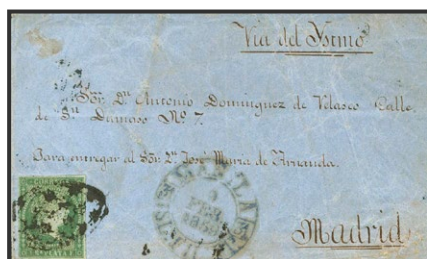 Via del Ystmo
Sor. Dn. Antonio Dominguez de Velasco Calle.
de Sn. Damaso No 7.
Para entregar al Sor. Dn. José Maria de
Madrid
FEB